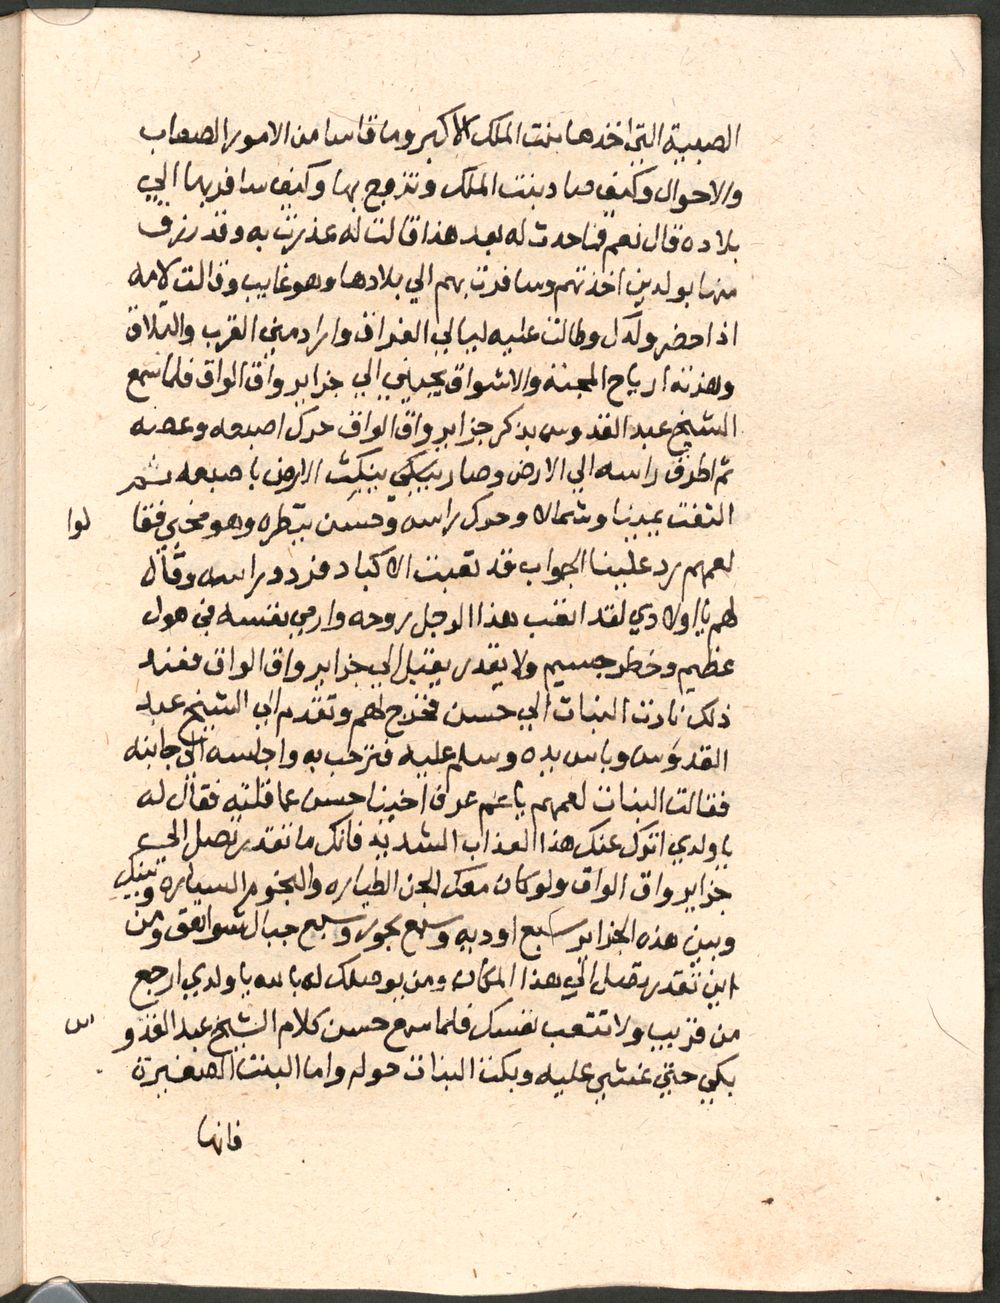 الصبية التي اخذها بنت الملك الاكبر وما قاسا من الامور الصعاب
والاحوال وكيف صاد بنت الملك وتزوج بها وكيف سافر بها الي
بلاده قال نعم فما حدث له بعد هذا قالت له عذرت به وقد رزق
منها بولدين اخذتهم وسافرت بهم الي بلادها وهو غايب وقالت لامه
اذا حضر ولدك وطالت عليه ليالي الفراق واراد مني القرب والتلاق
وهزته ارياح المحبة والاشواق يجيني الي جزاير واق الواق فلما سمع
الشيخ عبد القدوس بذكر جزاير واق الواق حرك اصبعه وعضه
ثم اطرق راسه الي الارض وصار يبكي ينكت الارض باصبعه ثم
التفت يمينا وشمالا وحرك راسه وحسن ينظره وهو مخبي فقا
لوا
لعمهم رد علينا الجواب قد تعبت الاكباد فرد وراسه وقال
لهم يا اولادي لقد اتعب هذا الرجل روحه وارمي نفسه في هول
عظيم وخطر جسيم ولا يقدر يقبل الي جزاير واق الواق فعند
ذلك نادت البنات الي حسن فخرج لهم وتقدم الي الشيخ عبد
القدوس وباس يده وسلم عليه فترحب به واجلسه الي جانبه
فقالت البنات لعمهم يا عم عرف اخينا حسن عما قلته فقال له
يا ولدي اترك عنك هذا العذاب الشديد فانك ما تقدر تصل الي
جزاير واق الواق ولو كان معك الجن الطياره والنجوم السياره وبينك
وبين هذه الجزاير سبع اوديه وسبع بحور وسبع جبال شواهق ومن
اين تقدر تصل الي هذا المكان ومن يوصلك له بالله يا ولدي ارجع
من قريب ولا تتعب نفسك فلما سمع حسن كلام الشيخ عبد القدو
س
بكي حتي غشي عليه وبكت البنات حوله واما البنت الصغيرة
فانها